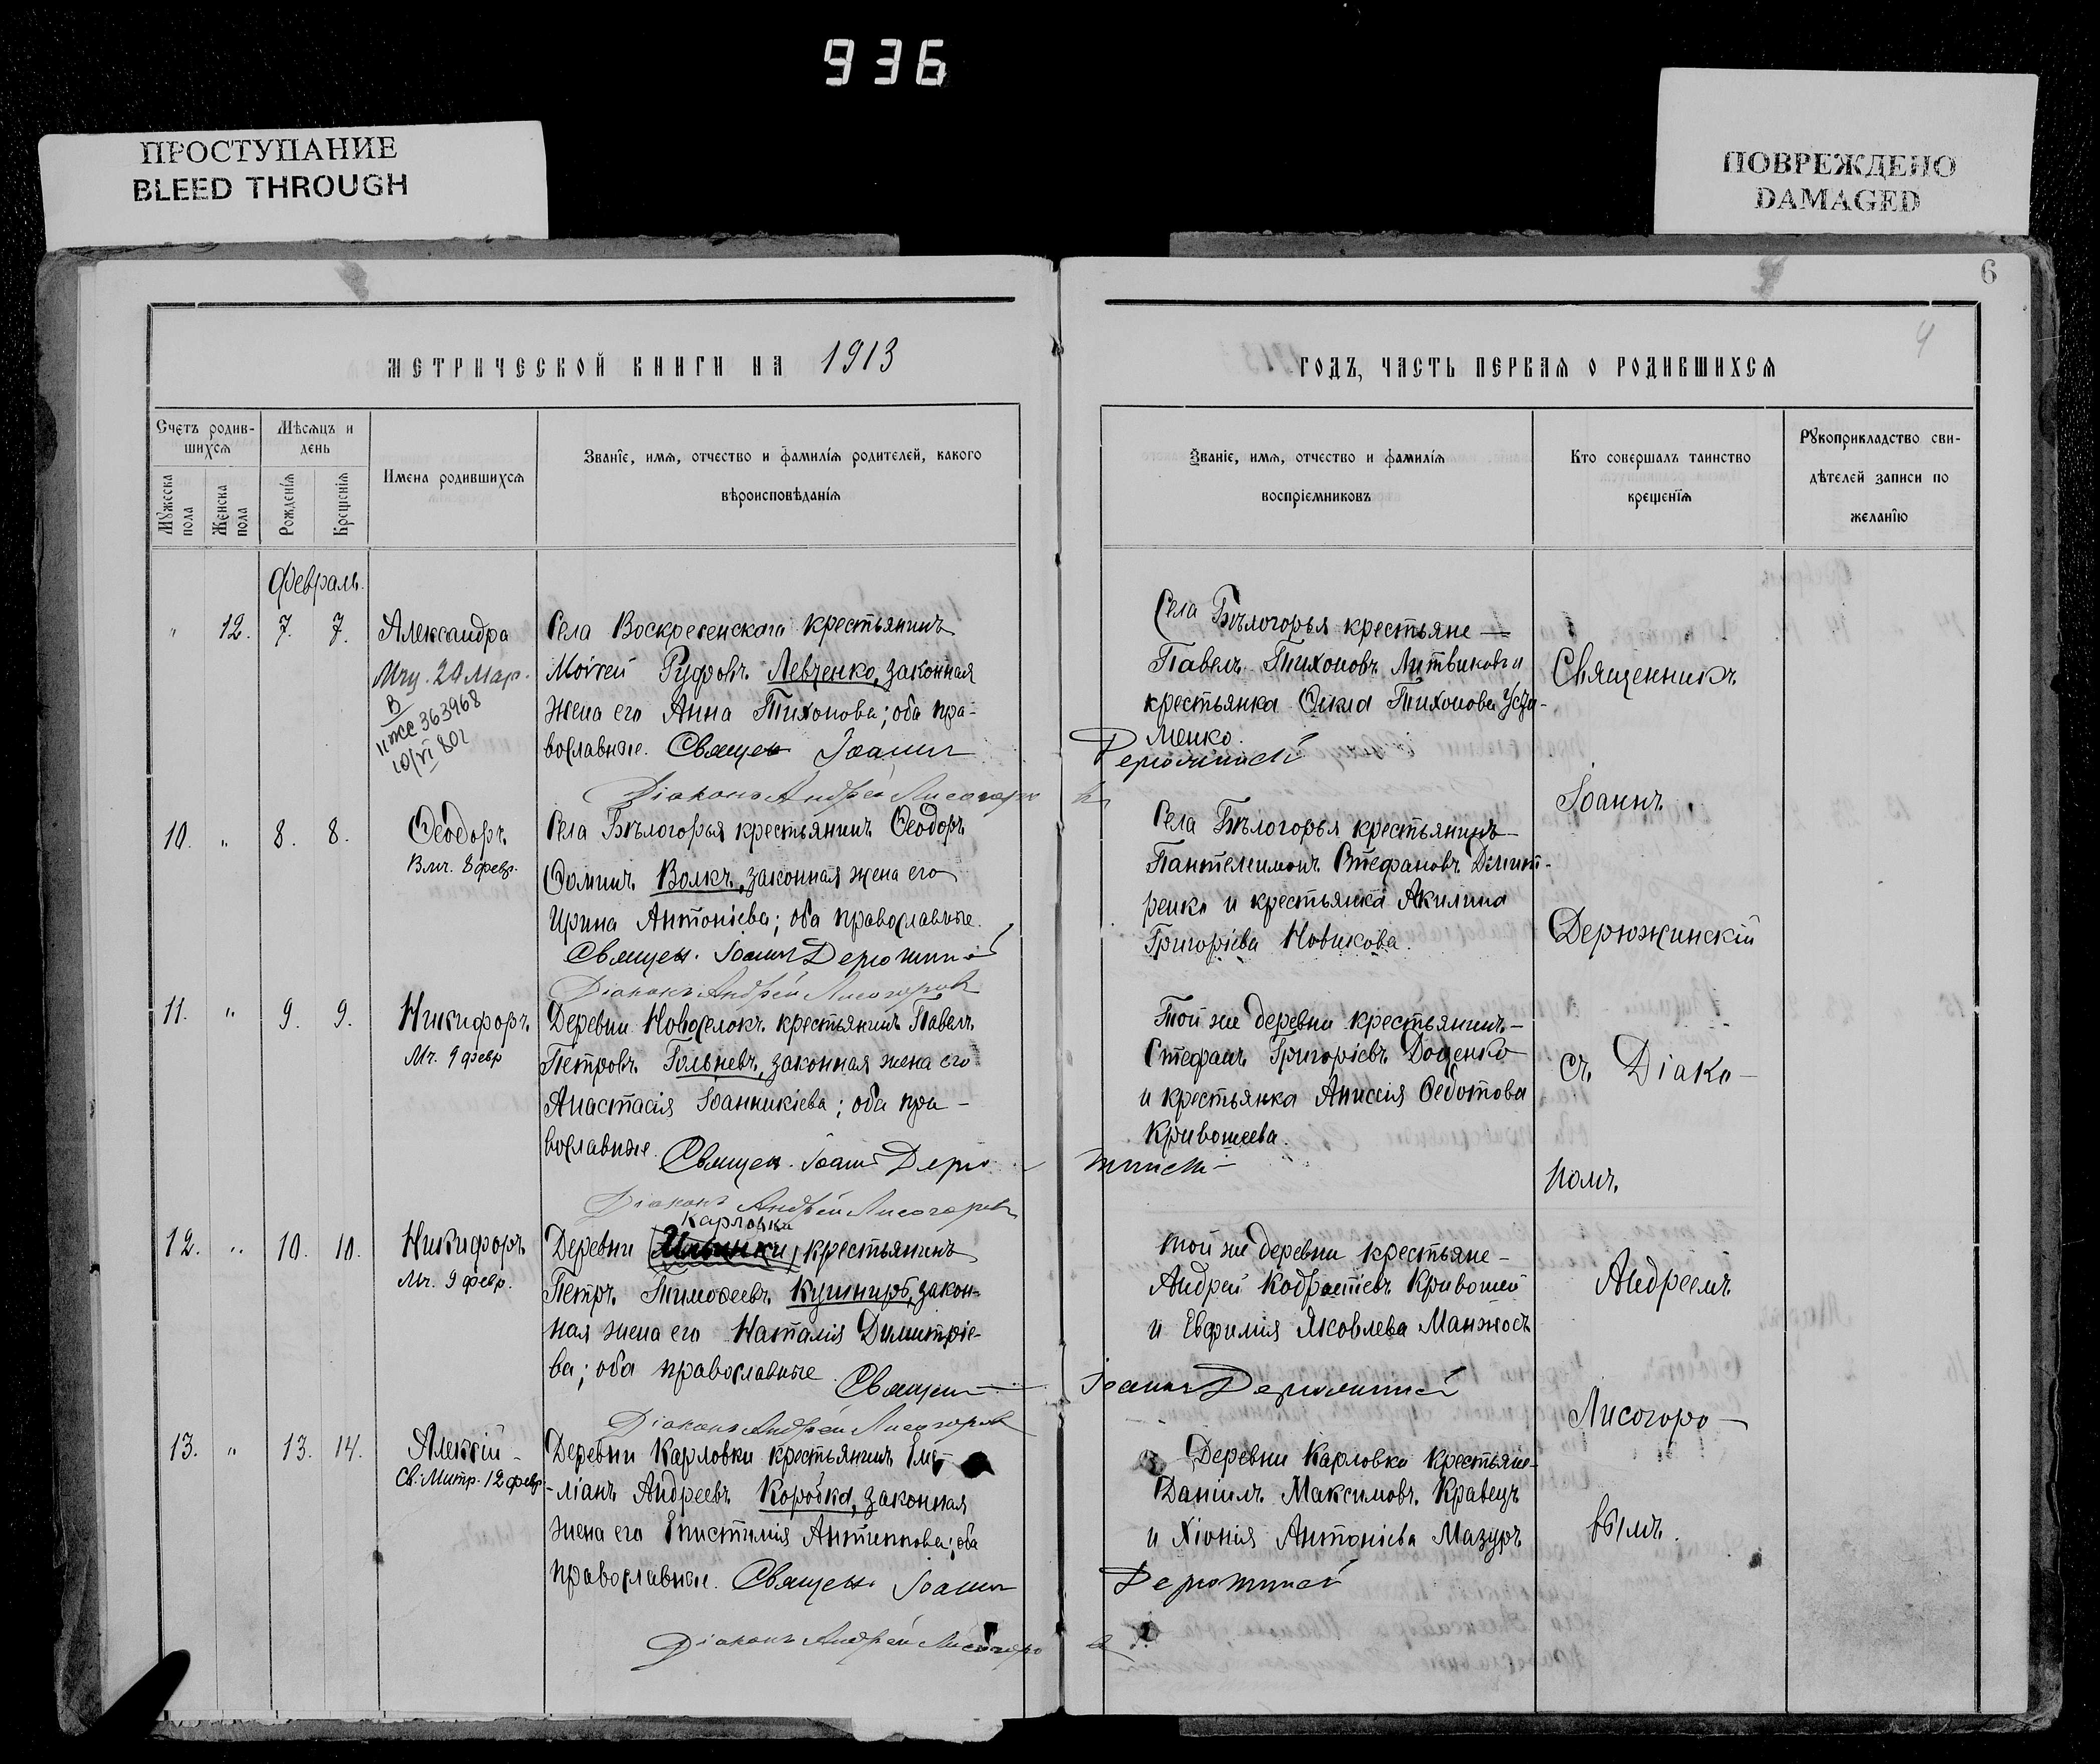 936
ПРОСТУПАНИЕ
BLEED THROUGH
ПОВРЕЖДЕНО
DAMAGED
6
4
МЕТРИЧЕСКОЙ КНИГИ НА 1913
ГОДЪ, ЧАСТЬ ПЕРВАЯ О РОДИВШИХСЯ
Счетъ родив-
шихся
Мѣсяцъ и
день
Мужеска
пола
Женска
пола
Рожденія
Крещенія
Имена родившихся
Званіе, имя, отчество и фамилія родителей, какого
вѣроисповѣданія
Званіе, имя, отчество и фамилія
воспріемниковъ
Кто совершалъ таинство
крещенія
Рукоприкладство сви-
дѣтелей записи по
желанію
Февраль.
" 12. 7. 7. Александра
Мчц. 24 Мар.
363968
Села Воскресенскаго крестьянинъ
Моѵсей Руфовъ Левченко, законная
жена его Анна Тихонова; оба пра-
вославные. Священ Іоаннъ
Дерюжинскій
Діаконъ Андрей Лисогоровъ
Села Бѣлогорья крестьяне —
Павелъ Тихоновъ Литвиновъ и
крестьянка Ѳекла Тихонова Усти-
менко.
10. " 8. 8. Ѳеодоръ.
Влч. 8 февр.
Села Бѣлогорья крестьянинъ Ѳеодоръ
Ѳоминъ Волкъ, законная жена его
Ирина Антоніева; оба православные.
Священ. Іоаннъ Дерюжинскій
Діаконъ Андрей Лисогоровъ
Села Бѣлогорья крестьянинъ —
Пантелеимонъ Стефановъ Димит-
ренко и крестьянка Акилина
Григоріева Новикова.
11. " 9. 9. Никифоръ.
Мч. 9 февр
Деревни Новоселокъ крестьянинъ Павелъ
Петровъ Гольневъ, законная жена его
Анастасія Іоанникіева; оба пра-
вославные. Священ. Іоаннъ Дерю-
жинскій
Діаконъ Андрей Лисогоровъ
Той же деревни крестьянинъ —
Стефанъ Григоріевъ Доценко
и крестьянка Анисія Ѳедотова
Кривошеева.
12. " 10. 10. Никифоръ
Мч. 9 февр.
Карловки
Деревни крестьянинъ
Петръ Тимоѳеевъ Кушниръ, закон-
ная жена его Наталія Димитріе-
ва; оба православные. Священ
Іоаннъ Дерюжинскій
Діаконъ Андрей Лисогоровъ
Той же деревни крестьяне —
Андрей Кодратіевъ Кривошей
и Евфимія Яковлева Манжосъ
13. " 13. 14. Алексій
Св. Митр. 12 февр.
Деревни Карловки крестьянинъ Еми-
-ліанъ Андреевъ Коробка, законная
жена его Епистимія Антипова; оба
православные. Священ. Іоаннъ
Дерюжинскій
Діаконъ Андрей Лисогоровъ
Деревни Карловки крестьяне
Даніилъ Максимовъ Кравецъ
и Хіонія Антоніева Мазуръ
Священникъ
Іоаннъ
Дерюжинскій
съ Діако-
номъ
Андреемъ
Лисогоро-
вымъ.